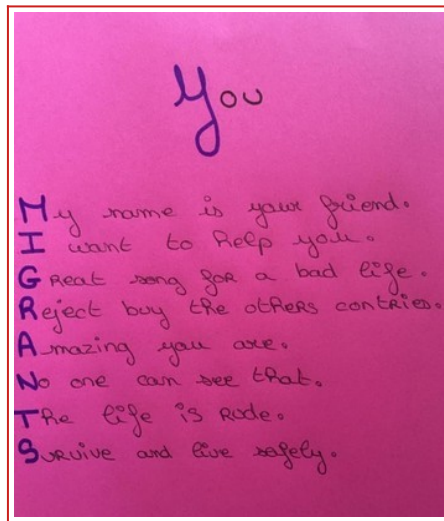 You
My name is your friend.
I want to help you.
GReat song for a bad life.
Reject buy the otheRs contRies.
Amazing you are.
No one can see that.
The life is Rude.
SuRvive and live safely.